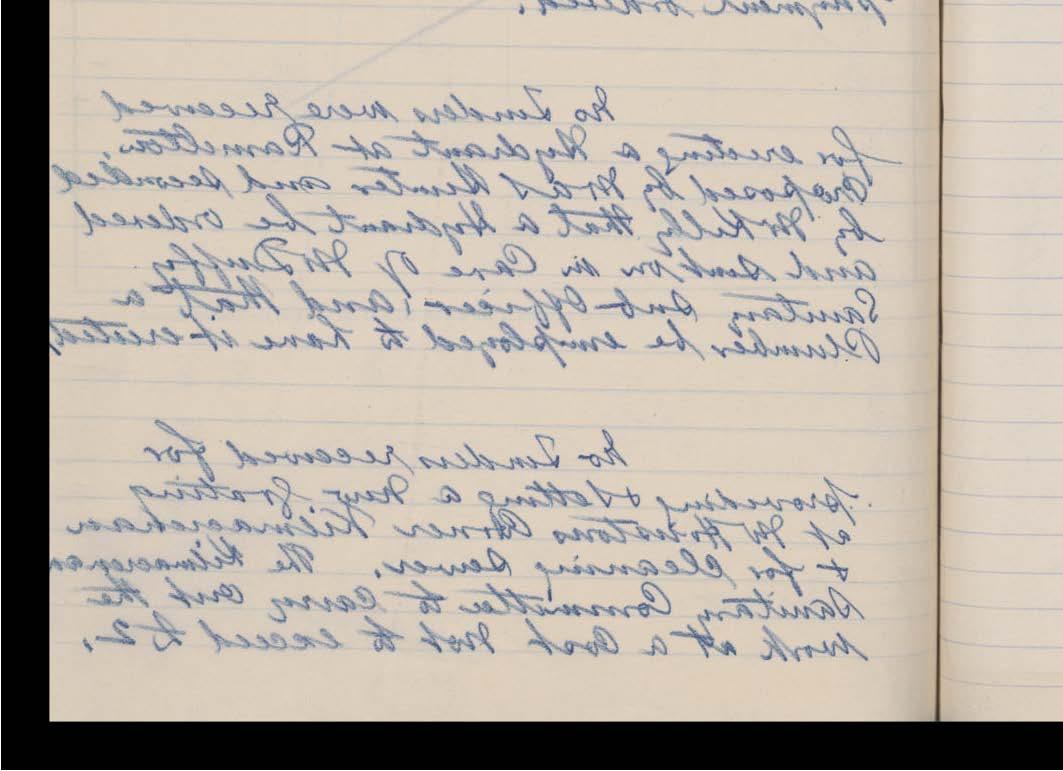 payment ordered.
No Tenders were received
for erecting a Hydrant at Ramelton.
Proposed by Wm J Hunter and seconded
by Mr Kelly that a Hydrant be ordered
and sent on in Care of Mr Duffy
Sanitary Sub-Officer and that a
Plumber be employed to have it erected
No Tenders received for
providing & setting a new grating
at Corner Kilmacrenan
& for cleaning sewer. The Kilmacrenan
Sanitary Committee to carry out the
work at a Cost Not to exceed £2.